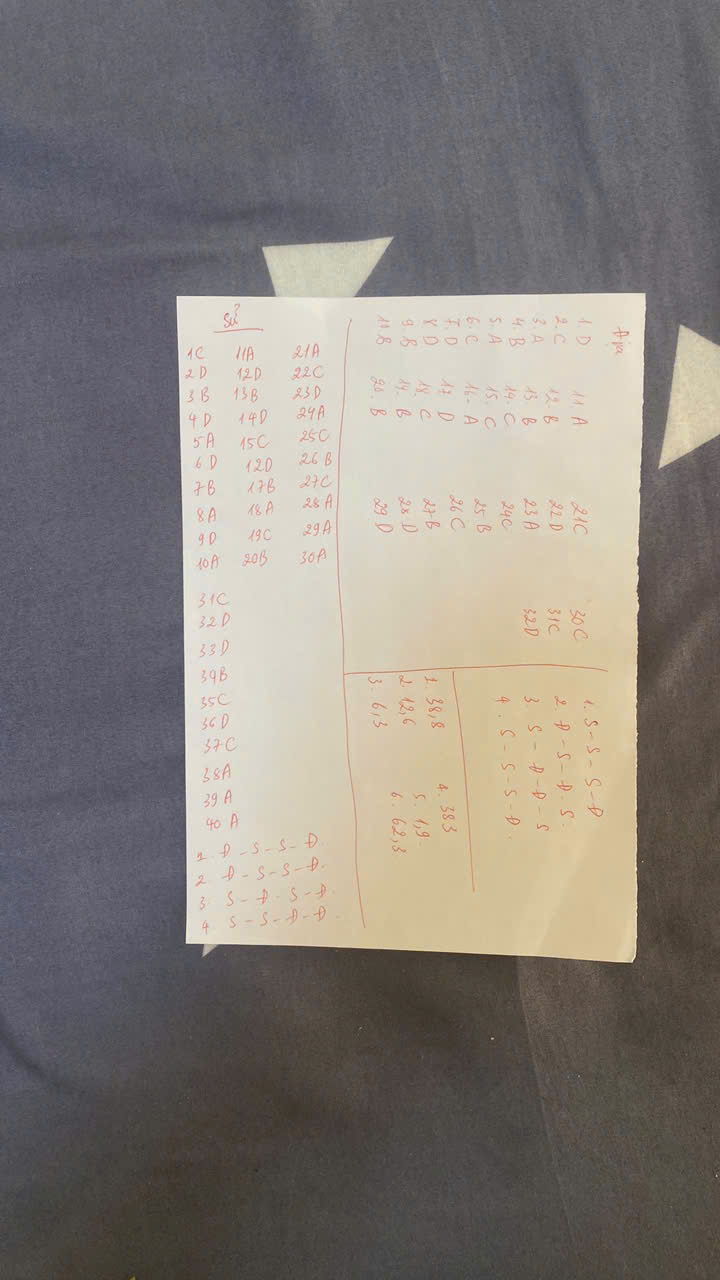 Sử
1C 11A 21A
2D 12D 22C
3B 13B 23D
4D 14D 24A
5A 15C 25C
6D 12D 26B
7B 17B 27C
8A 18A 28A
9D 19C 29A
10A 20B 30A
31C
32D
33D
34B
35C
36D
37C
38A
39A
40A
1. Đ - S - S - Đ.
2. Đ - S - S - Đ.
3. S - Đ - S - Đ.
4. S - S - Đ - Đ.
Địa
1. D 11. A 21C 30C
2. C 12. B 22D 31C
3. A 13. B 23A 32D
4. B 14. C 24C
5. A 15. C 25B
6. C 16. A 26C
7. D 17. D 27B
8. D 18. C 28D
9. B 19. B 29D
10. B 20. B
1. S - S - S - Đ
2. Đ - S - Đ - S.
3. S - Đ - Đ - S
4. S - S - S - Đ.
1. 38,8 4. 383
2. 12,6 5. 1,9.
3. 6,3 6. 62,3